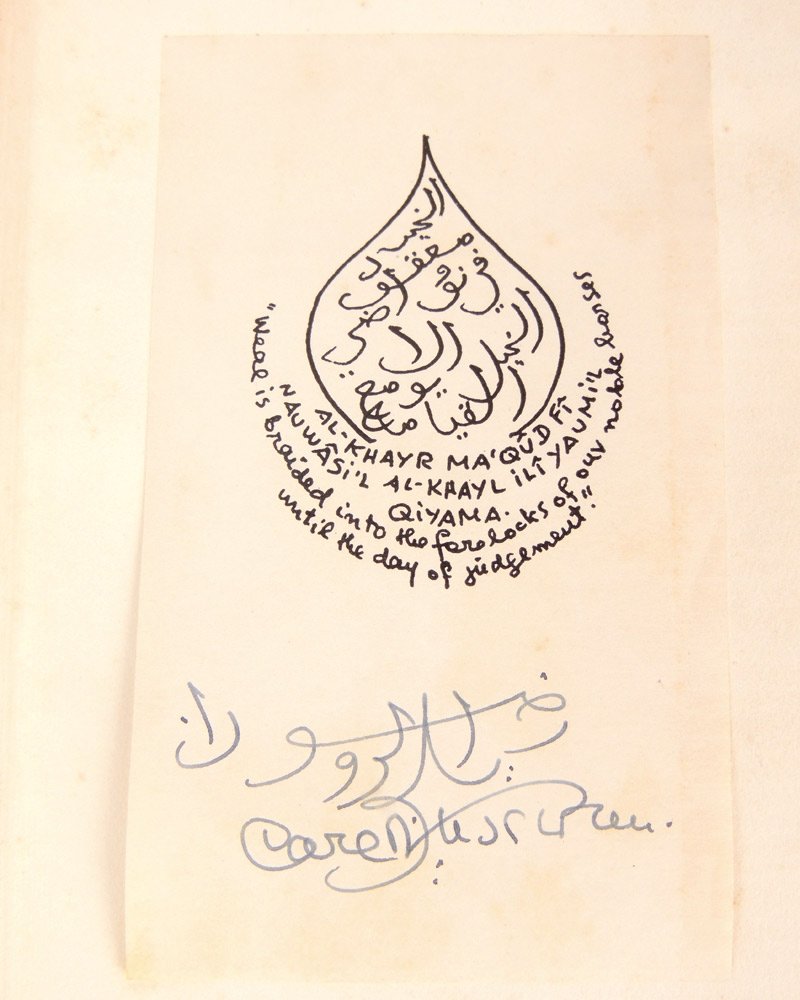 الخير
معقود
في نوا
صي
الخيل
الى
يوم
القيامة
AL-KHAYR MA'QÛD FÎ
NAUWÂSI'L AL-KHAYL ILÎ YAUMI'L
QIYAMA.
"Weal is braided into the forelocks of our noble horses
until the day of judgement."